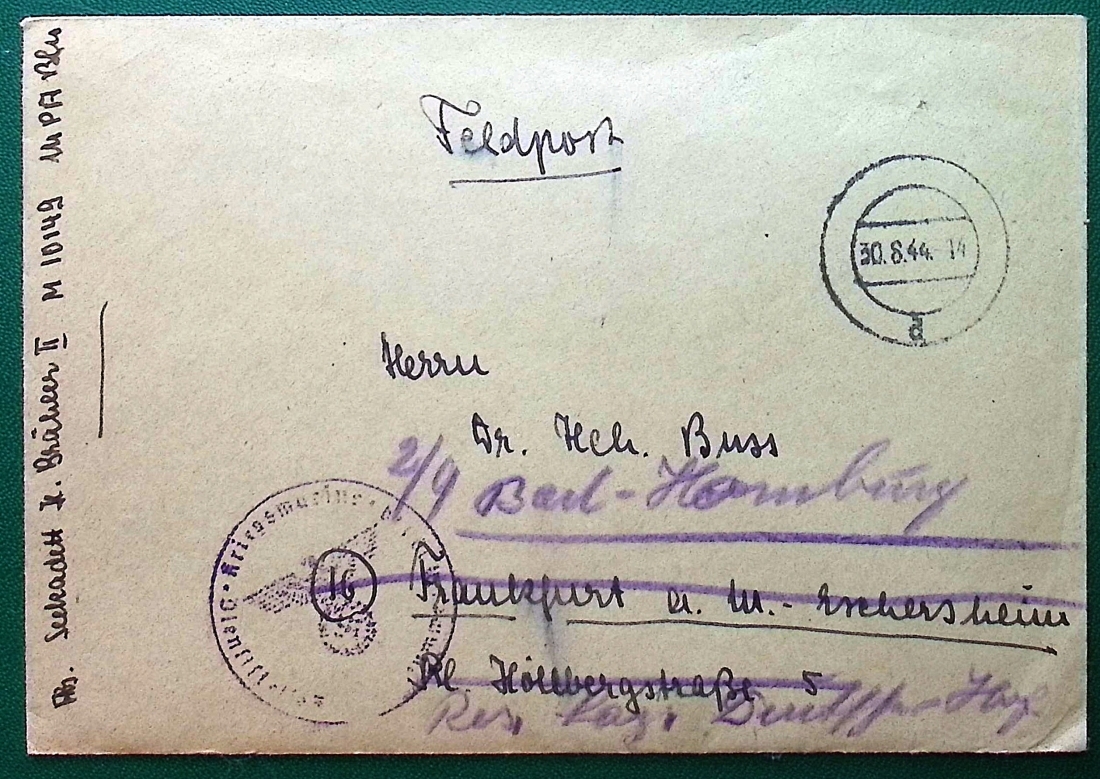 Feldpost
30.8.44. 14
d
Herrn
Dr. Hch. Buss
2/9 Bad-Homburg
16 Frankfurt a. M.-Eschersheim
Kl. Höllbergstraße 5
Res. Laz.
Kriegsmarine
Abs. Seekadett H. Bräheer II M 10149 MPA Bln